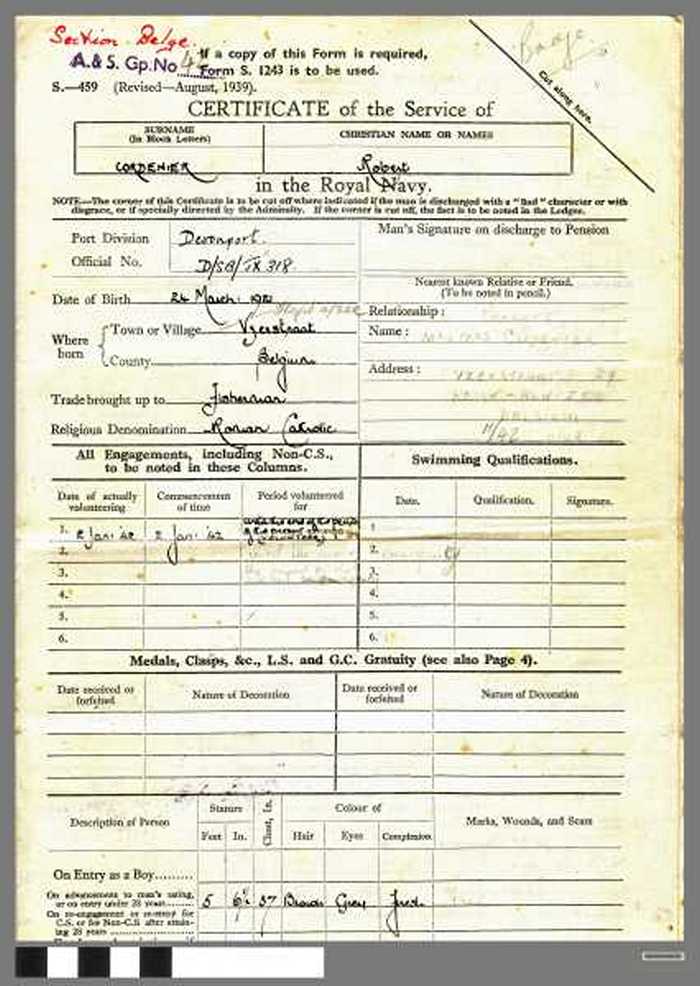 Section Belge.
A.& S. Gp.No
If a copy of this Form is required,
Form S. 1243 is to be used.
S.—459 (Revised—August, 1939).
Cut along here.
CERTIFICATE of the Service of
SURNAME
(In Block Letters)
CHRISTIAN NAME OR NAMES
CORDENIER
Robert
in the Royal Navy.
NOTE.—The corner of this Certificate is to be cut off where indicated if the man is discharged with a "Bad" character or with
disgrace, or if specially directed by the Admiralty. If the corner is cut off, the fact is to be noted in the Ledger.
Port Division Devonport.
Official No. D/SB/TX 318.
Man's Signature on discharge to Pension
Nearest known Relative or Friend.
(To be noted in pencil.)
Date of Birth 24 March
Relationship :
Where born
Town or Village
Name :
County Belgium
Address :
Trade brought up to Fisherman
Religious Denomination Roman Catholic
11/42
All Engagements, including Non-C.S.,
to be noted in these Columns.
Swimming Qualifications.
Date of actually volunteering
Commencement of time
Period volunteered for
Date.
Qualification.
Signature.
1. 2 Jan: 42 2 Jan: '42 1
2. 2.
3. 3.
4. 4.
5. 5.
6. 6.
Medals, Clasps, &c., L.S. and G.C. Gratuity (see also Page 4).
Date received or forfeited
Nature of Decoration
Date received or forfeited
Nature of Decoration
Description of Person
Stature
Feet In.
Chest, In.
Colour of
Hair Eyes Complexion
Marks, Wounds, and Scars
On Entry as a Boy
On advancement to man's rating,
or on entry under 28 years 5 6½ 37 Grey
On re-engagement or re-entry for
C.S. or for Non-C.S. after attain-
ing 28 years